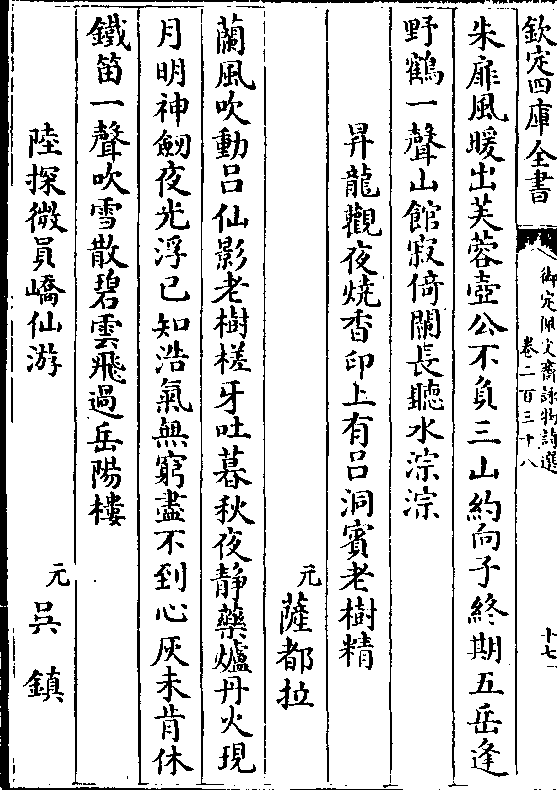 欽定四庫全書
御定佩文齋詠物詩選
卷二百三十八
十七
朱扉風暖出芙蓉壺公不負三山約向子終期五岳逢
野鶴一聲山館寂倚闌長聽水淙淙
昇龍觀夜燒香印上有呂洞賓老樹精
元薩都拉
蘭風吹動呂仙影老樹槎牙吐暮秋夜静藥爐丹火現
月明神劒夜光浮已知浩氣無窮盡不到心灰未肯休
鐵笛一聲吹雪散碧雲飛過岳陽樓
陸探微員嶠仙游
元吳鎮